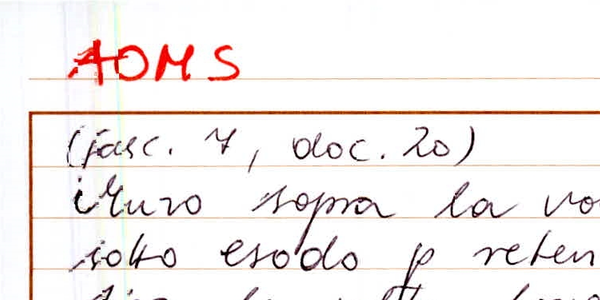 AOMS
(fasc. 7, doc. 20)
Muro sopra la vo
sotto esodo p reten